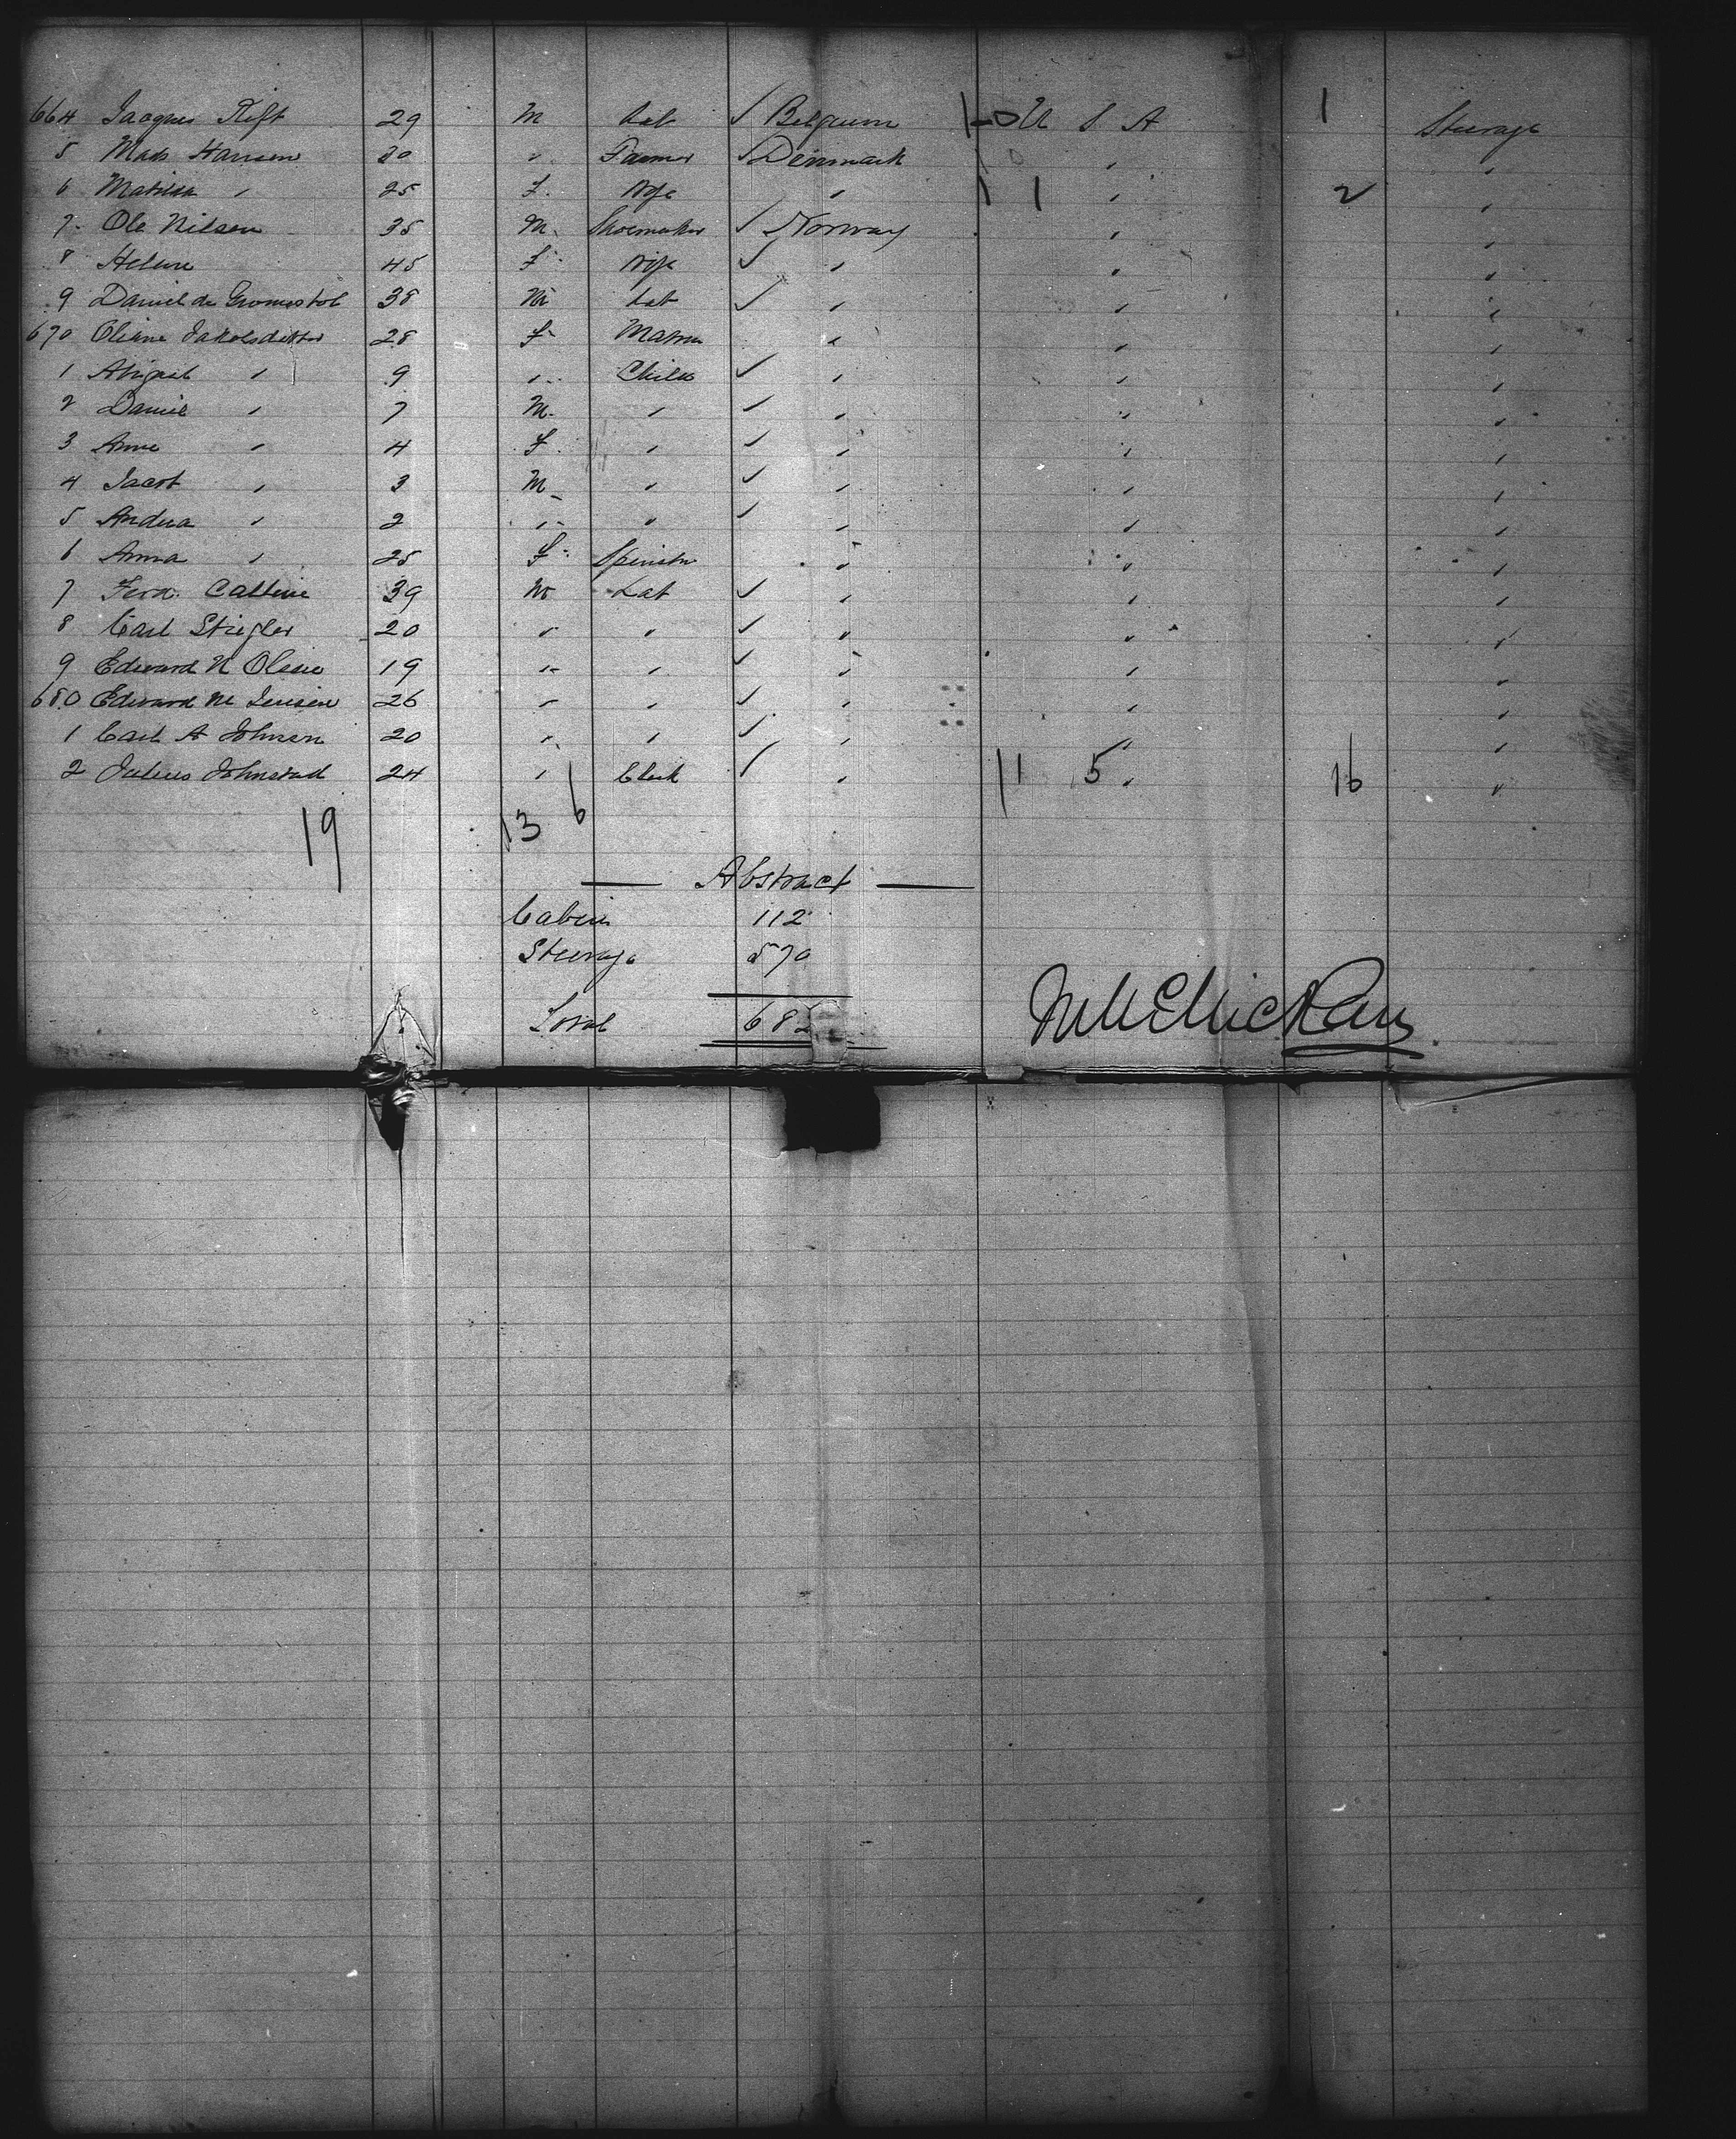 664 Jacques Rift 29 M Lab √ Belgium 1-0 U S A 1 Steerage
5 Mads Hansen 30 " Farmer √ Denmark 0 " "
6 Matilda " 25 F. Wife " 1 1 " 2 "
7. Ole Nilsen 35 M. Shoemaker √ Norway " "
8 Helene 45 F. Wife √ " " "
9 Daniel de 38 M Lab √ " " "
670 Oliane Jakobsdatter 28 F. Matron " " "
1 Abigael " 9 " Child √ " " "
2 Daniel " 7 M. " √ " " "
3 Anne " 4 F. " √ " " "
4 Jacob " 3 M " √ " " "
5 Andrea " 2 " " √ " " "
6 Anna " 25 F. Spinster " " "
7 Ferd. 39 M Lab √ " " "
8 Carl Stiegler 20 " " √ " " "
9 Edward N Olsen 19 " " √ " " "
680 Edward M Jensen 26 " " √ " " "
1 Carl A Johnsen 20 " " √ " " "
2 Julius Johnstad 24 " Clerk √ " 11 5 " 16 "
19 13 6
— Abstract —
Cabin 112
Steerage 570
Total 682